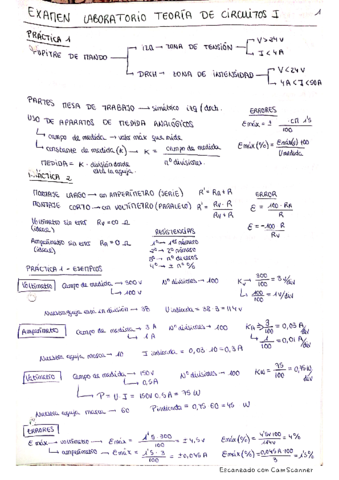 EXAMEN LABORATORIO TEORÍA DE CIRCUITOS I 1
PRÁCTICA 1
PUPITRE DE MANDO
IZQ → ZONA DE TENSIÓN
V > 24V
I < 4A
DRCH → ZONA DE INTENSIDAD
V < 24V
4A < I < 50A
PARTES MESA DE TRABAJO → simétrico izq / drch.
USO DE APARATOS DE MEDIDA ANALÓGICOS
campo de medida → valor máx que mide
constantes de medida (K) → K = campo de medida / nº divisiones
MEDIDA = K · división donde está la aguja
ERRORES
Emáx = ± CM · 1'5 / 100
Emáx (%) = Emáx · 100 / Umedida
PRÁCTICA 2
MONTAJE LARGO → en AMPERÍMETRO (SERIE) R' = Ra + R
MONTAJE CORTO → en VOLTÍMETRO (PARALELO) R' = Rv · R / Rv + R
ERROR
E = 100 · Ra / R
E = -100 · R / Rv
Voltímetro sin error (ideales) Rv = ∞ Ω
Amperímetro sin error (ideales) Ra = 0 Ω
RESISTENCIAS
1º → 1º número
2º → 2º número
3º → nº de ceros
4º → ± nº %
PRÁCTICA 1 - EJEMPLOS
Voltímetro Campo de medida → 300 V Nº divisiones → 100 Kv → 300 / 100 = 3 V/div
→ 100 V → 100 / 100 = 1 V/div
Nuestra aguja está en división → 38 U medida = 38 · 3 = 114 V
Amperímetro Campo de medida → 3 A Nº Divisiones → 100 KA → 3 / 100 = 0,03 A/div
→ 1 A → 1 / 100 = 0,01 A/div
Nuestra aguja marca → 10 I medida = 0,03 · 10 = 0,3 A
Vatímetro Campo de medida → 150 V Nº divisiones → 100 Kw = 75 / 100 = 0,75 W/div
→ 0,5 A
→ P = U · I = 150V · 0.5 A = 75 W
Nuestra aguja marca → 60 P medida = 0,75 · 60 = 45 W
ERRORES
E máx → voltímetro → Emáx = 1'5 · 300 / 100 = ± 4,5 V Emáx (%) = 4'5V · 100 / 114V = 4%
→ amperímetro → Emáx = 1'5 · 3 / 100 = ± 0,045 A Emáx (%) = 0,045A · 100 / 3 = 1'5%
Escaneado con CamScanner